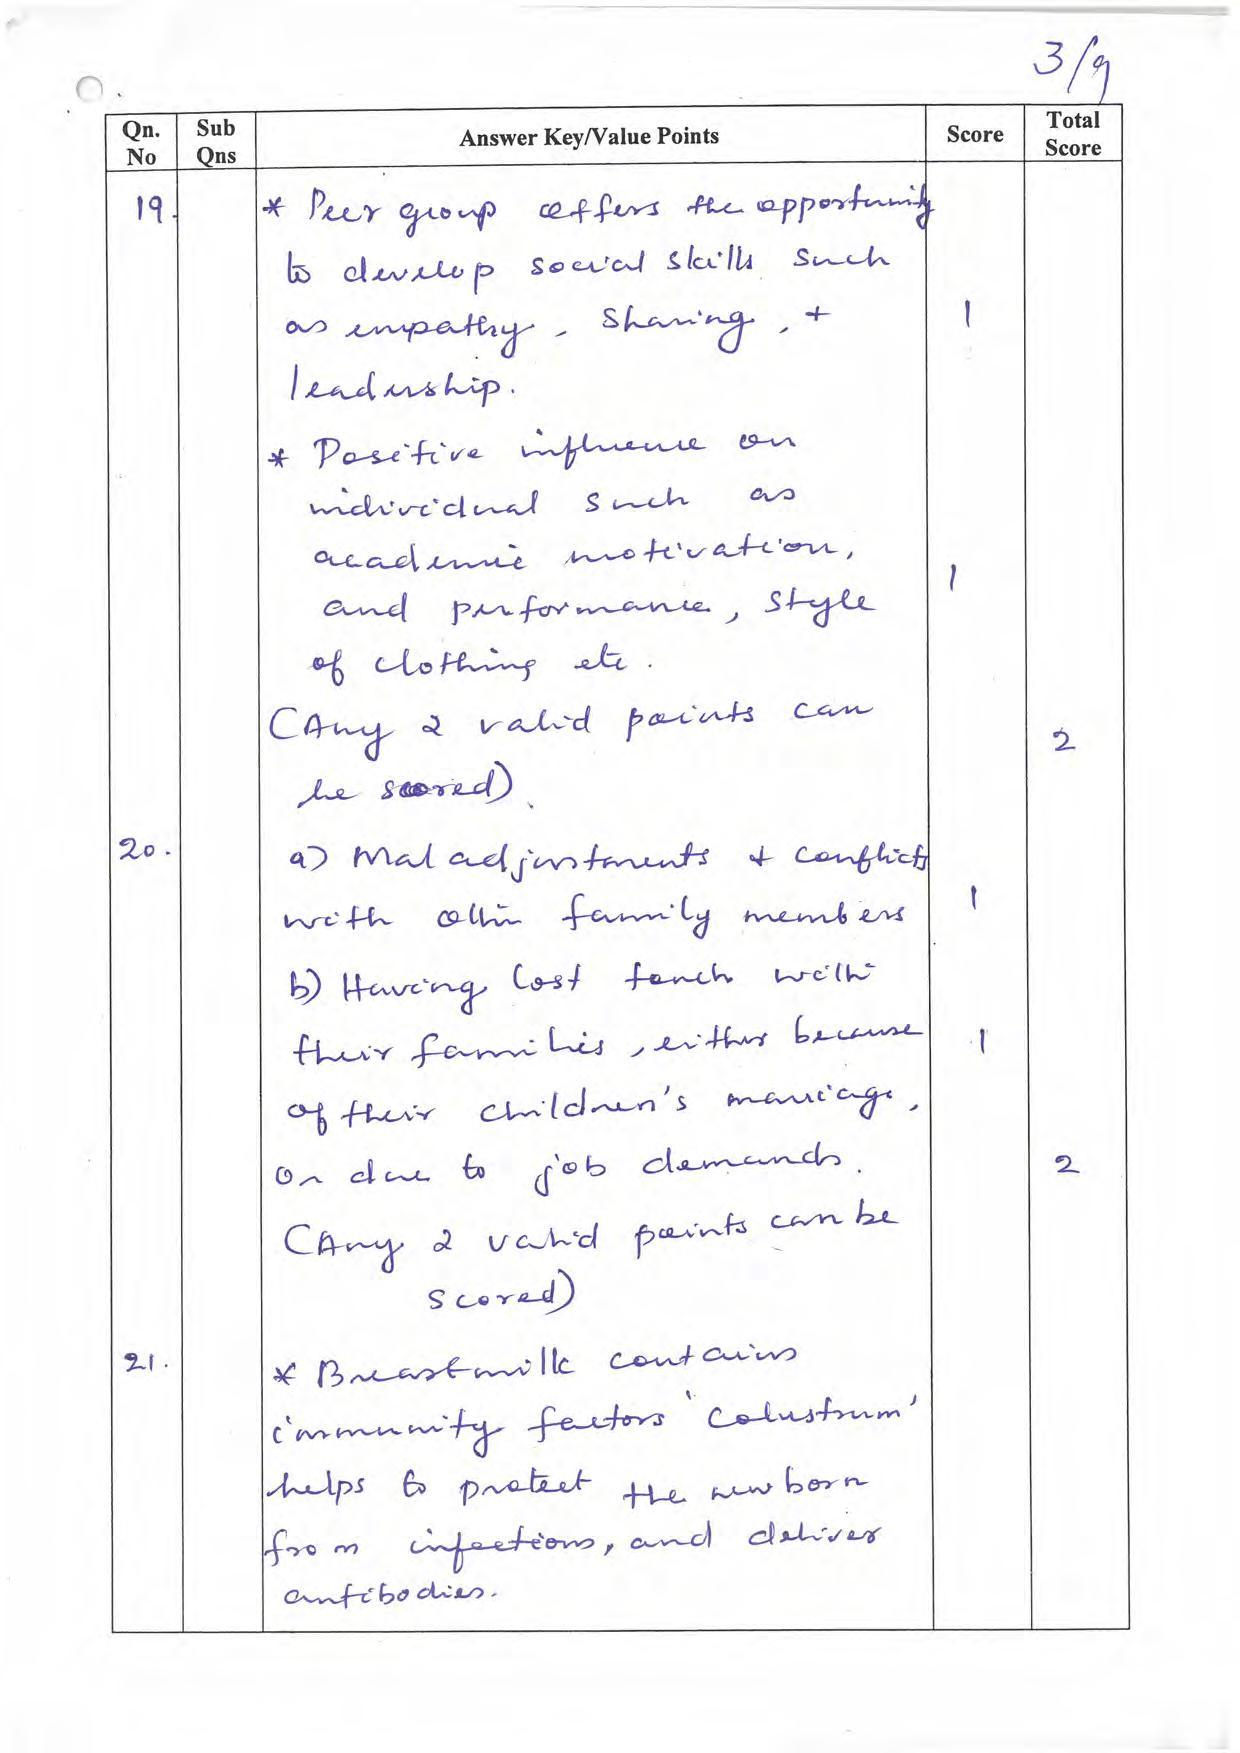 3/9
Qn. No Sub Qns Answer Key/Value Points Score Total Score
19. * Peer group offers the opportunity
to develop social skills such
as empathy, sharing, + 1
leadership.
* Positive influence on
individual such as
academic motivation, 1
and performance, style
of clothing etc.
(Any 2 valid points can 2
be scored).
20. a) Maladjustments + conflicts
with other family members 1
b) Having lost touch with
their families, either because 1
of their children's marriage,
or due to job demands. 2
(Any 2 valid points can be
scored)
21. * Breastmilk contains
immunity factors 'colustrum'
helps to protect the newborn
from infections, and deliver
antibodies.